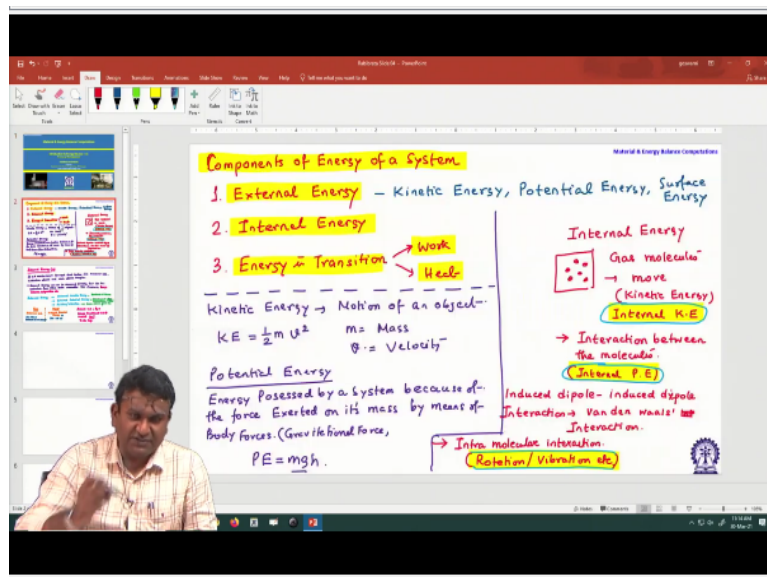 Rabibrata Slide 04 - PowerPoint
File Home Insert Draw Design Transitions Animations Slide Show Review View Help Tell me what you want to do
Share
Select Draw with Touch Eraser Lasso Select
Add Pen
Ruler
Ink to Shape
Ink to Math
Tools
Pens
Stencils
Convert
Material & Energy Balance Computations
Components of Energy of a System
1. External Energy – Kinetic Energy, Potential Energy, Surface Energy
2. Internal Energy
3. Energy in Transition → Work
→ Heat
Kinetic Energy → Motion of an object
KE = ½ m v² m = Mass
v = Velocity
Potential Energy
Energy Posessed by a System because of
the force Exerted on it's mass by means of
Body Forces. (Gravitational Force,
PE = mgh.
Internal Energy
Gas molecules
→ move
(Kinetic Energy)
Internal K.E
→ Interaction between
the molecules.
(Internal P.E)
Induced dipole - induced dipole
Interaction → Van den Waals'
Interaction.
→ Intra molecular interaction.
(Rotation / Vibration etc)
Notes Comments
11:14 AM